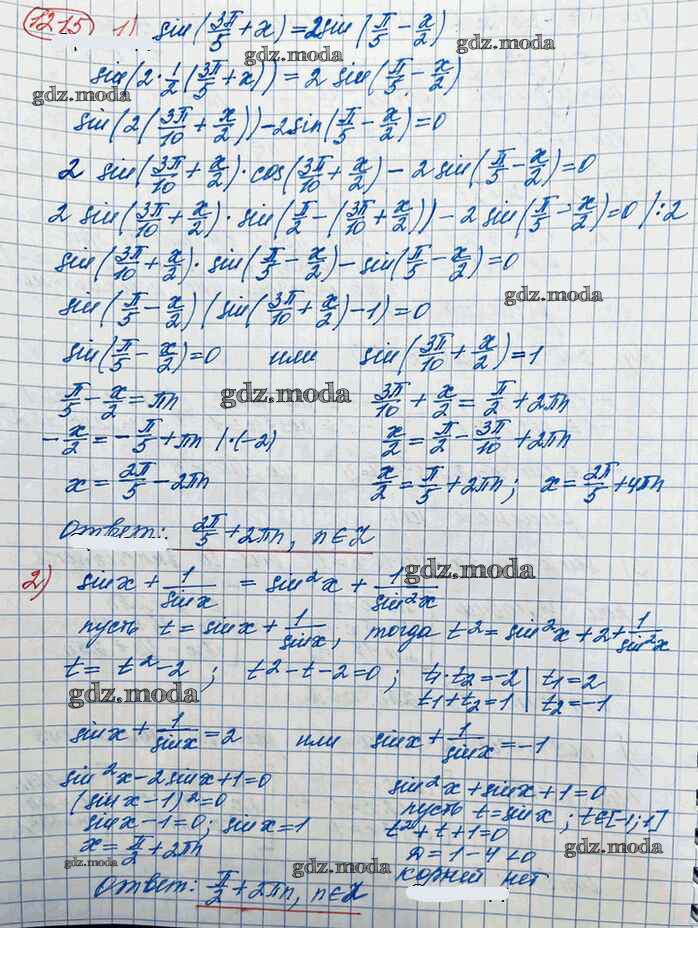 1215 1) sin(3π/5 + x) = 2sin(π/5 − x/2)
gdz.moda
sin(2·1/2(3π/5 + x)) = 2 sin(π/5 − x/2)
gdz.moda gdz.moda
sin(2(3π/10 + x/2)) − 2sin(π/5 − x/2) = 0
2 sin(3π/10 + x/2)·cos(3π/10 + x/2) − 2 sin(π/5 − x/2) = 0
2 sin(3π/10 + x/2)·sin(π/2 − (3π/10 + x/2)) − 2 sin(π/5 − x/2) = 0 /:2
sin(3π/10 + x/2)·sin(π/5 − x/2) − sin(π/5 − x/2) = 0
gdz.moda
sin(π/5 − x/2)(sin(3π/10 + x/2) − 1) = 0
sin(π/5 − x/2) = 0 или sin(3π/10 + x/2) = 1
gdz.moda
π/5 − x/2 = πn 3π/10 + x/2 = π/2 + 2πn
−x/2 = −π/5 + πn /·(−2) x/2 = π/2 − 3π/10 + 2πn
x = 2π/5 − 2πn x/2 = π/5 + 2πn; x = 2π/5 + 4πn
Ответ: 2π/5 + 2πn, n∈Z
2) sinx + 1/sinx = sin²x + 1/sin²x
gdz.moda
пусть t = sinx + 1/sinx, тогда t² = sin²x + 2 + 1/sin²x
t = t² − 2; t² − t − 2 = 0; t₁·t₂ = −2 | t₁ = 2
gdz.moda
t₁ + t₂ = 1 | t₂ = −1
sinx + 1/sinx = 2 или sinx + 1/sinx = −1
gdz.moda
sin²x − 2sinx + 1 = 0 sin²x + sinx + 1 = 0
(sinx − 1)² = 0 пусть t = sinx; t∈[−1; 1]
sinx − 1 = 0; sinx = 1 t² + t + 1 = 0
x = π/2 + 2πn D = 1 − 4 < 0
gdz.moda gdz.moda gdz.moda
корней нет
Ответ: π/2 + 2πn, n∈Z
gdz.moda